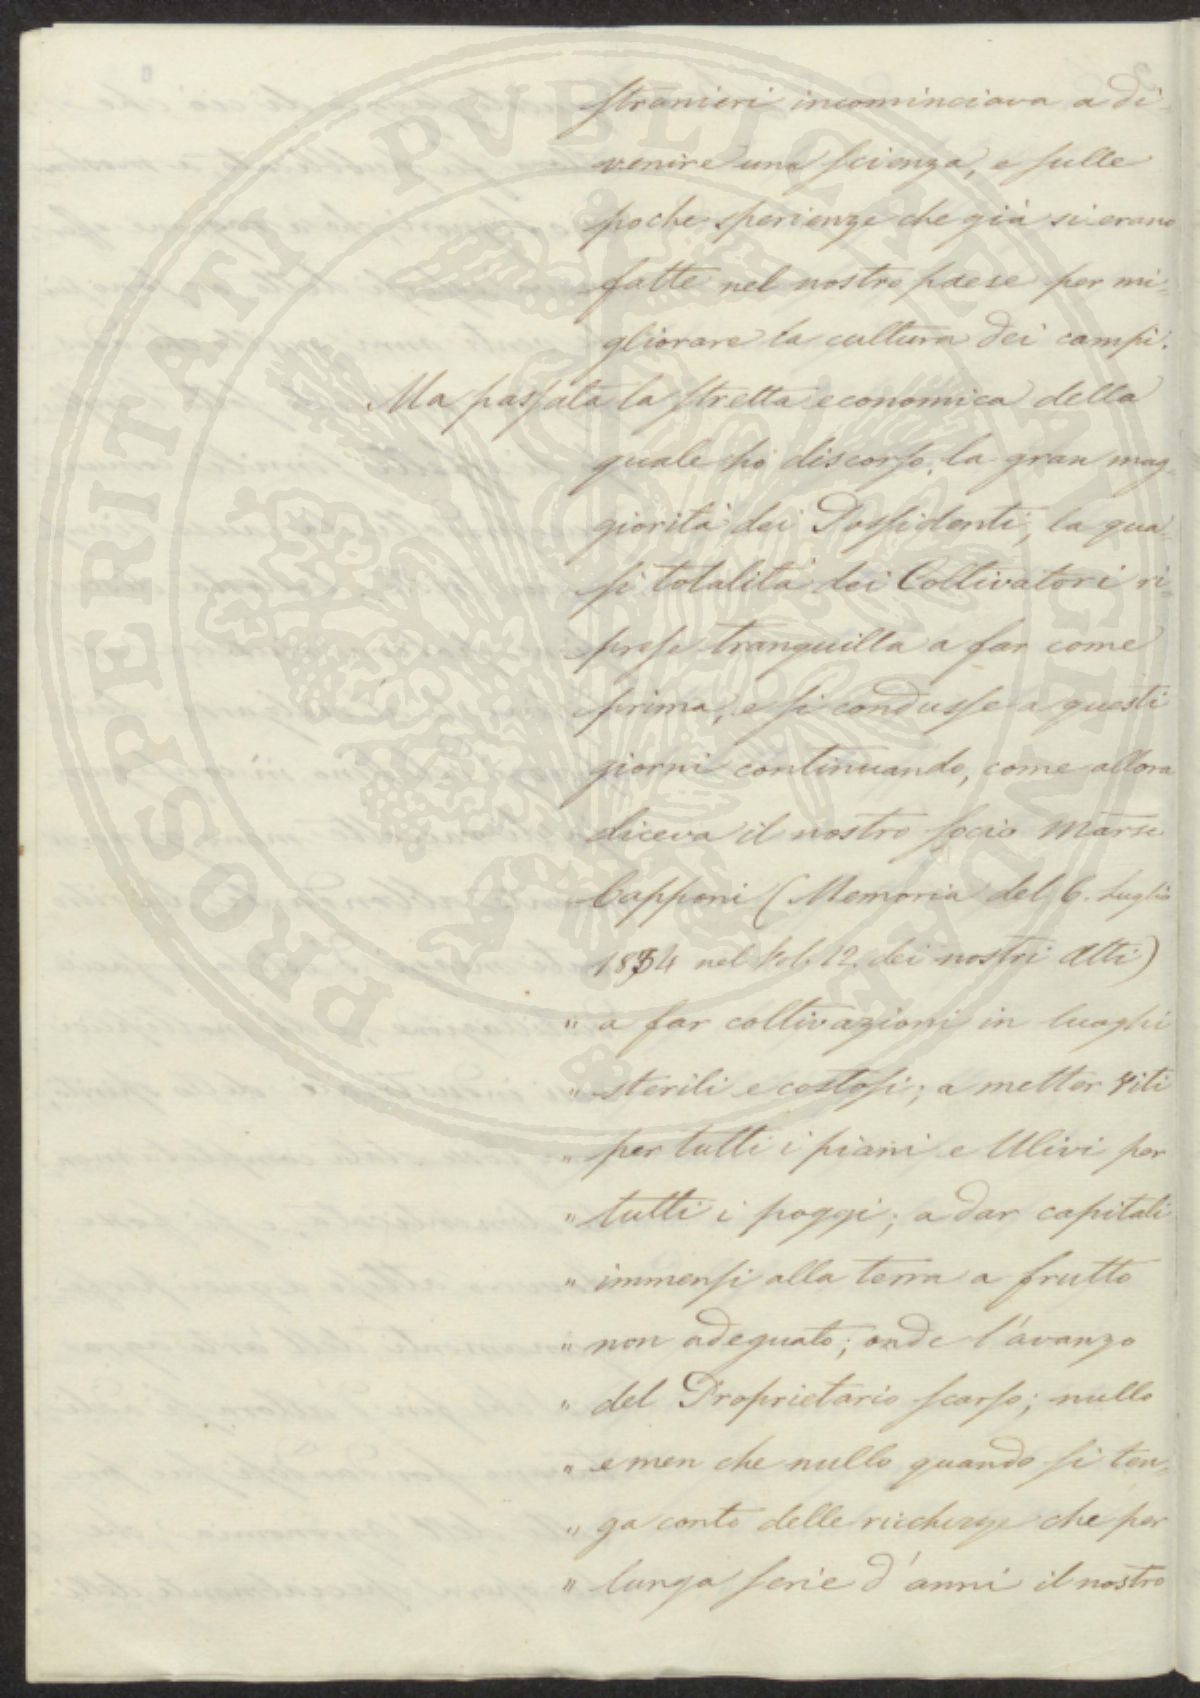 stranieri incominciava a di-
venire una scienza, e sulle
poche sperienze che già si erano
fatte nel nostro paese per mi-
gliorare la cultura dei campi.
Ma passata la stretta economica della
quale ho discorso, la gran mag-
giorità dei Possidenti, la qua-
si totalità dei Coltivatori ri-
prese tranquilla a far come
prima, e si condusse a questi
giorni continuando, come allora
diceva il nostro socio Marse
Capponi (Memoria del 6. Luglio
1834 nel Vol. 12. dei nostri Atti)
" a far coltivazioni in luoghi
" sterili e costosi; a metter viti
" per tutti i piani e Ulivi per
" tutti i poggi; a dar capitali
" immensi alla terra a frutto
" non adeguato; onde l'avanzo
" del Proprietario scarso; nullo
" e men che nullo quando si ten-
" ga conto delle ricchezze che per
" lunga serie d'anni il nostro
PROSPERITATI PVBLICAE AVGENDAE